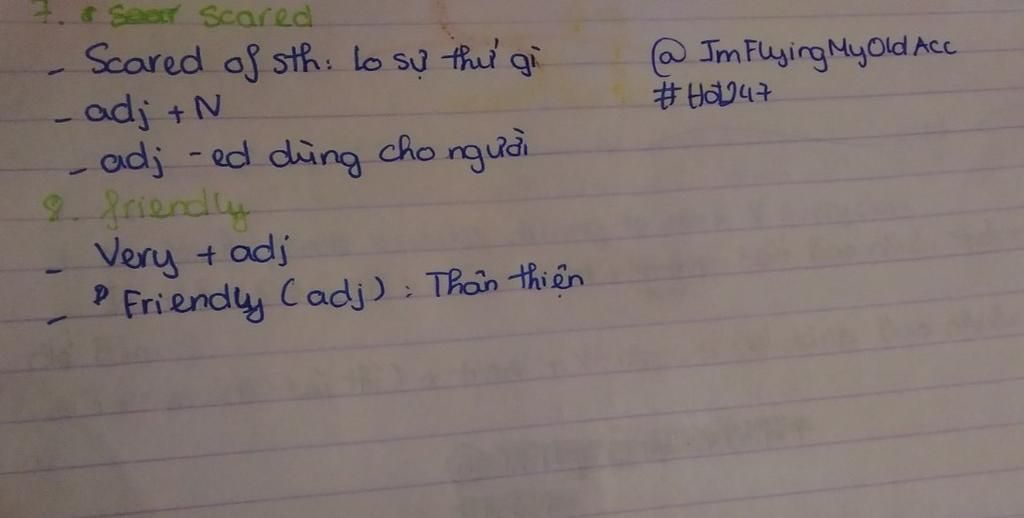 7. scared
- Scared of sth: lo sợ thứ gì
@ImFlyingMyOldAcc
- adj + N
#Hoc247
- adj -ed dùng cho người
8. friendly
- Very + adj
- Friendly (adj): Thân thiện